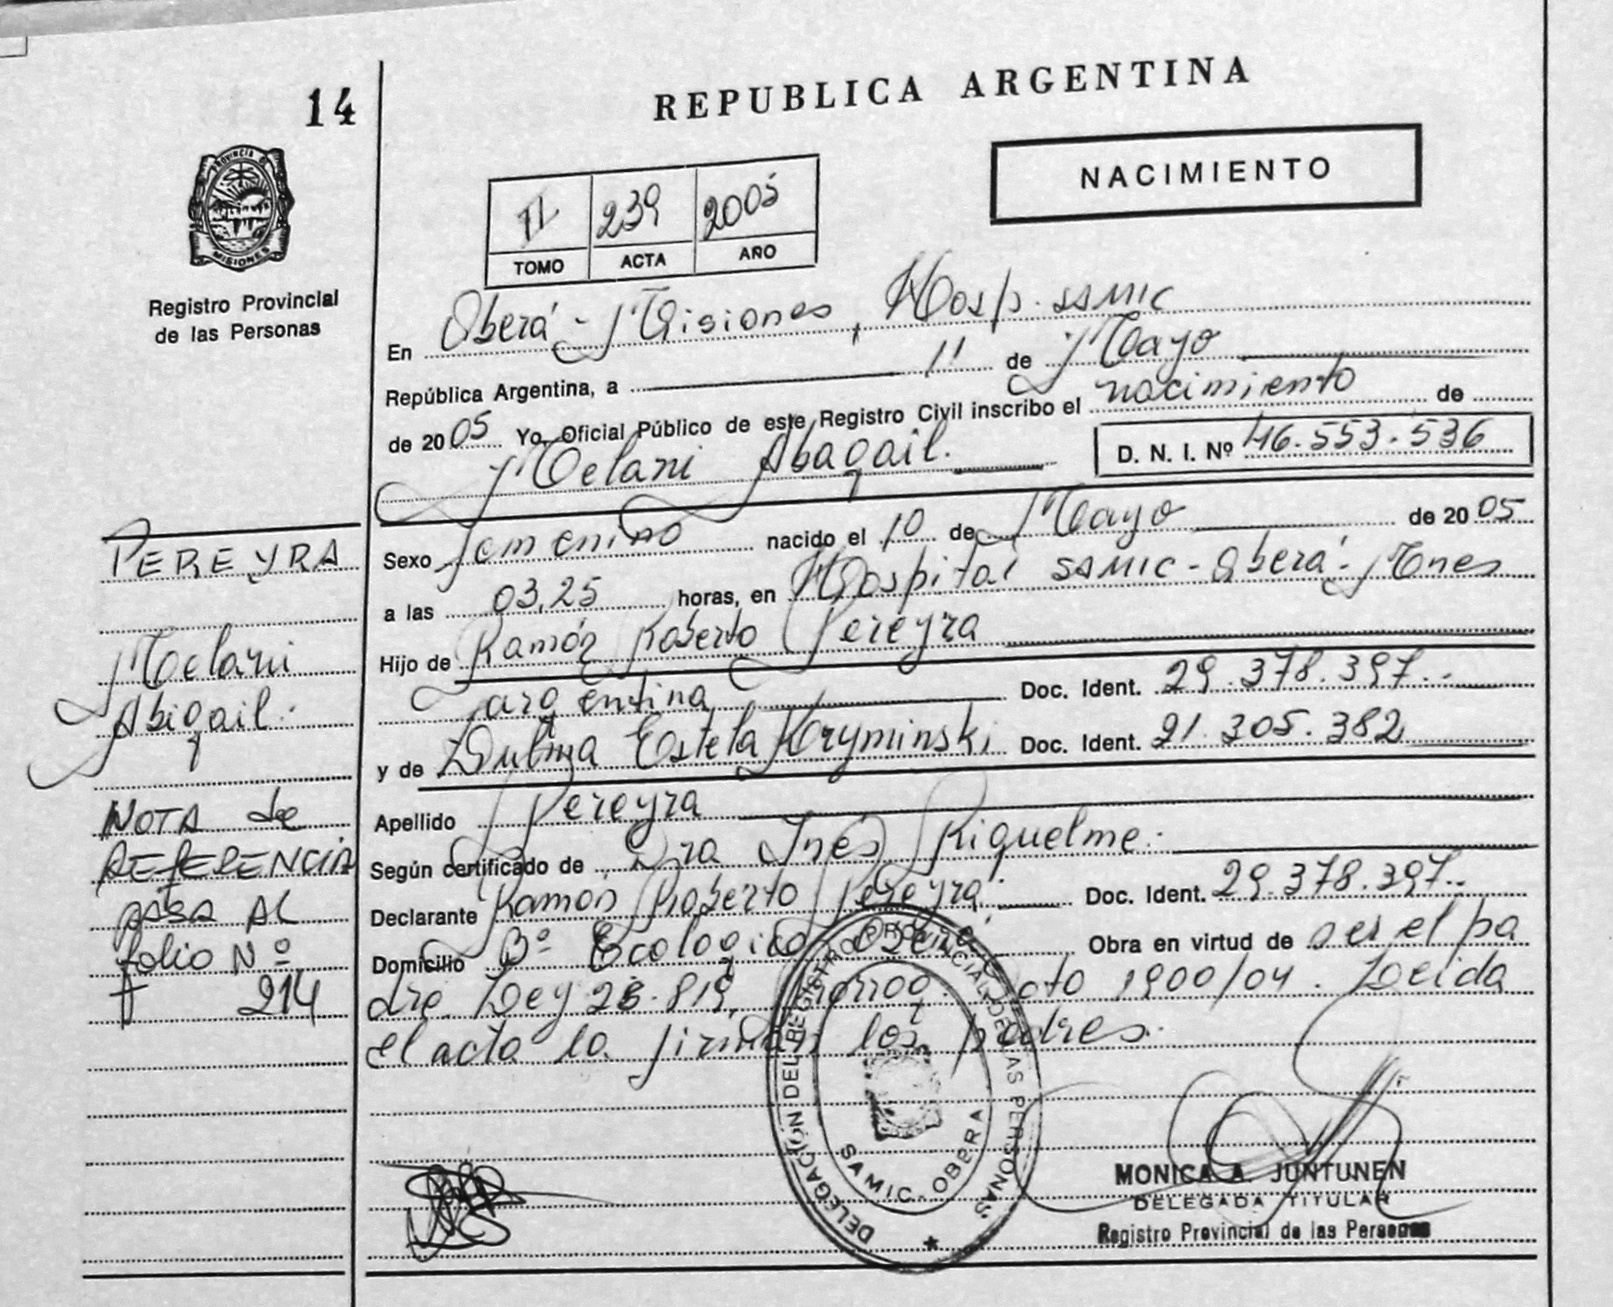 14
REPUBLICA ARGENTINA
NACIMIENTO
II 239 2005
TOMO ACTA AÑO
PROVINCIA DE
MISIONES
Registro Provincial
de las Personas
En Oberá - Misiones, Hosp. SAMIC
República Argentina, a 11 de Mayo
de 2005 Yo, Oficial Público de este Registro Civil inscribo el nacimiento de
Melani Abagail. D. N. I. Nº 46.553.536
Sexo femenino nacido el 10 de Mayo de 2005
a las 03,25 horas, en Hospital SAMIC - Oberá - Mnes
Hijo de Ramón Roberto Pereyra
argentina Doc. Ident. 29.378.397.-
y de Estela Kryminski Doc. Ident. 21.305.382
Apellido Pereyra
Según certificado de Dra Inés Riquelme.
Declarante Ramón Roberto Pereyra. Doc. Ident. 29.378.397.-
Domicilio Bº Ecologico Obra en virtud de ser el pa
dre. Ley 1900/04. Leida
el acta la firman los padres.
PEREYRA
Melani
Abigail.
NOTA de
REFERENCIA
PASA AL
folio Nº
214
DELEGACIÓN DEL REGISTRO PROVINCIAL DE LAS PERSONAS
SAMIC - OBERA
MONICA A. JUNTUNEN
DELEGADA TITULAR
Registro Provincial de las Personas